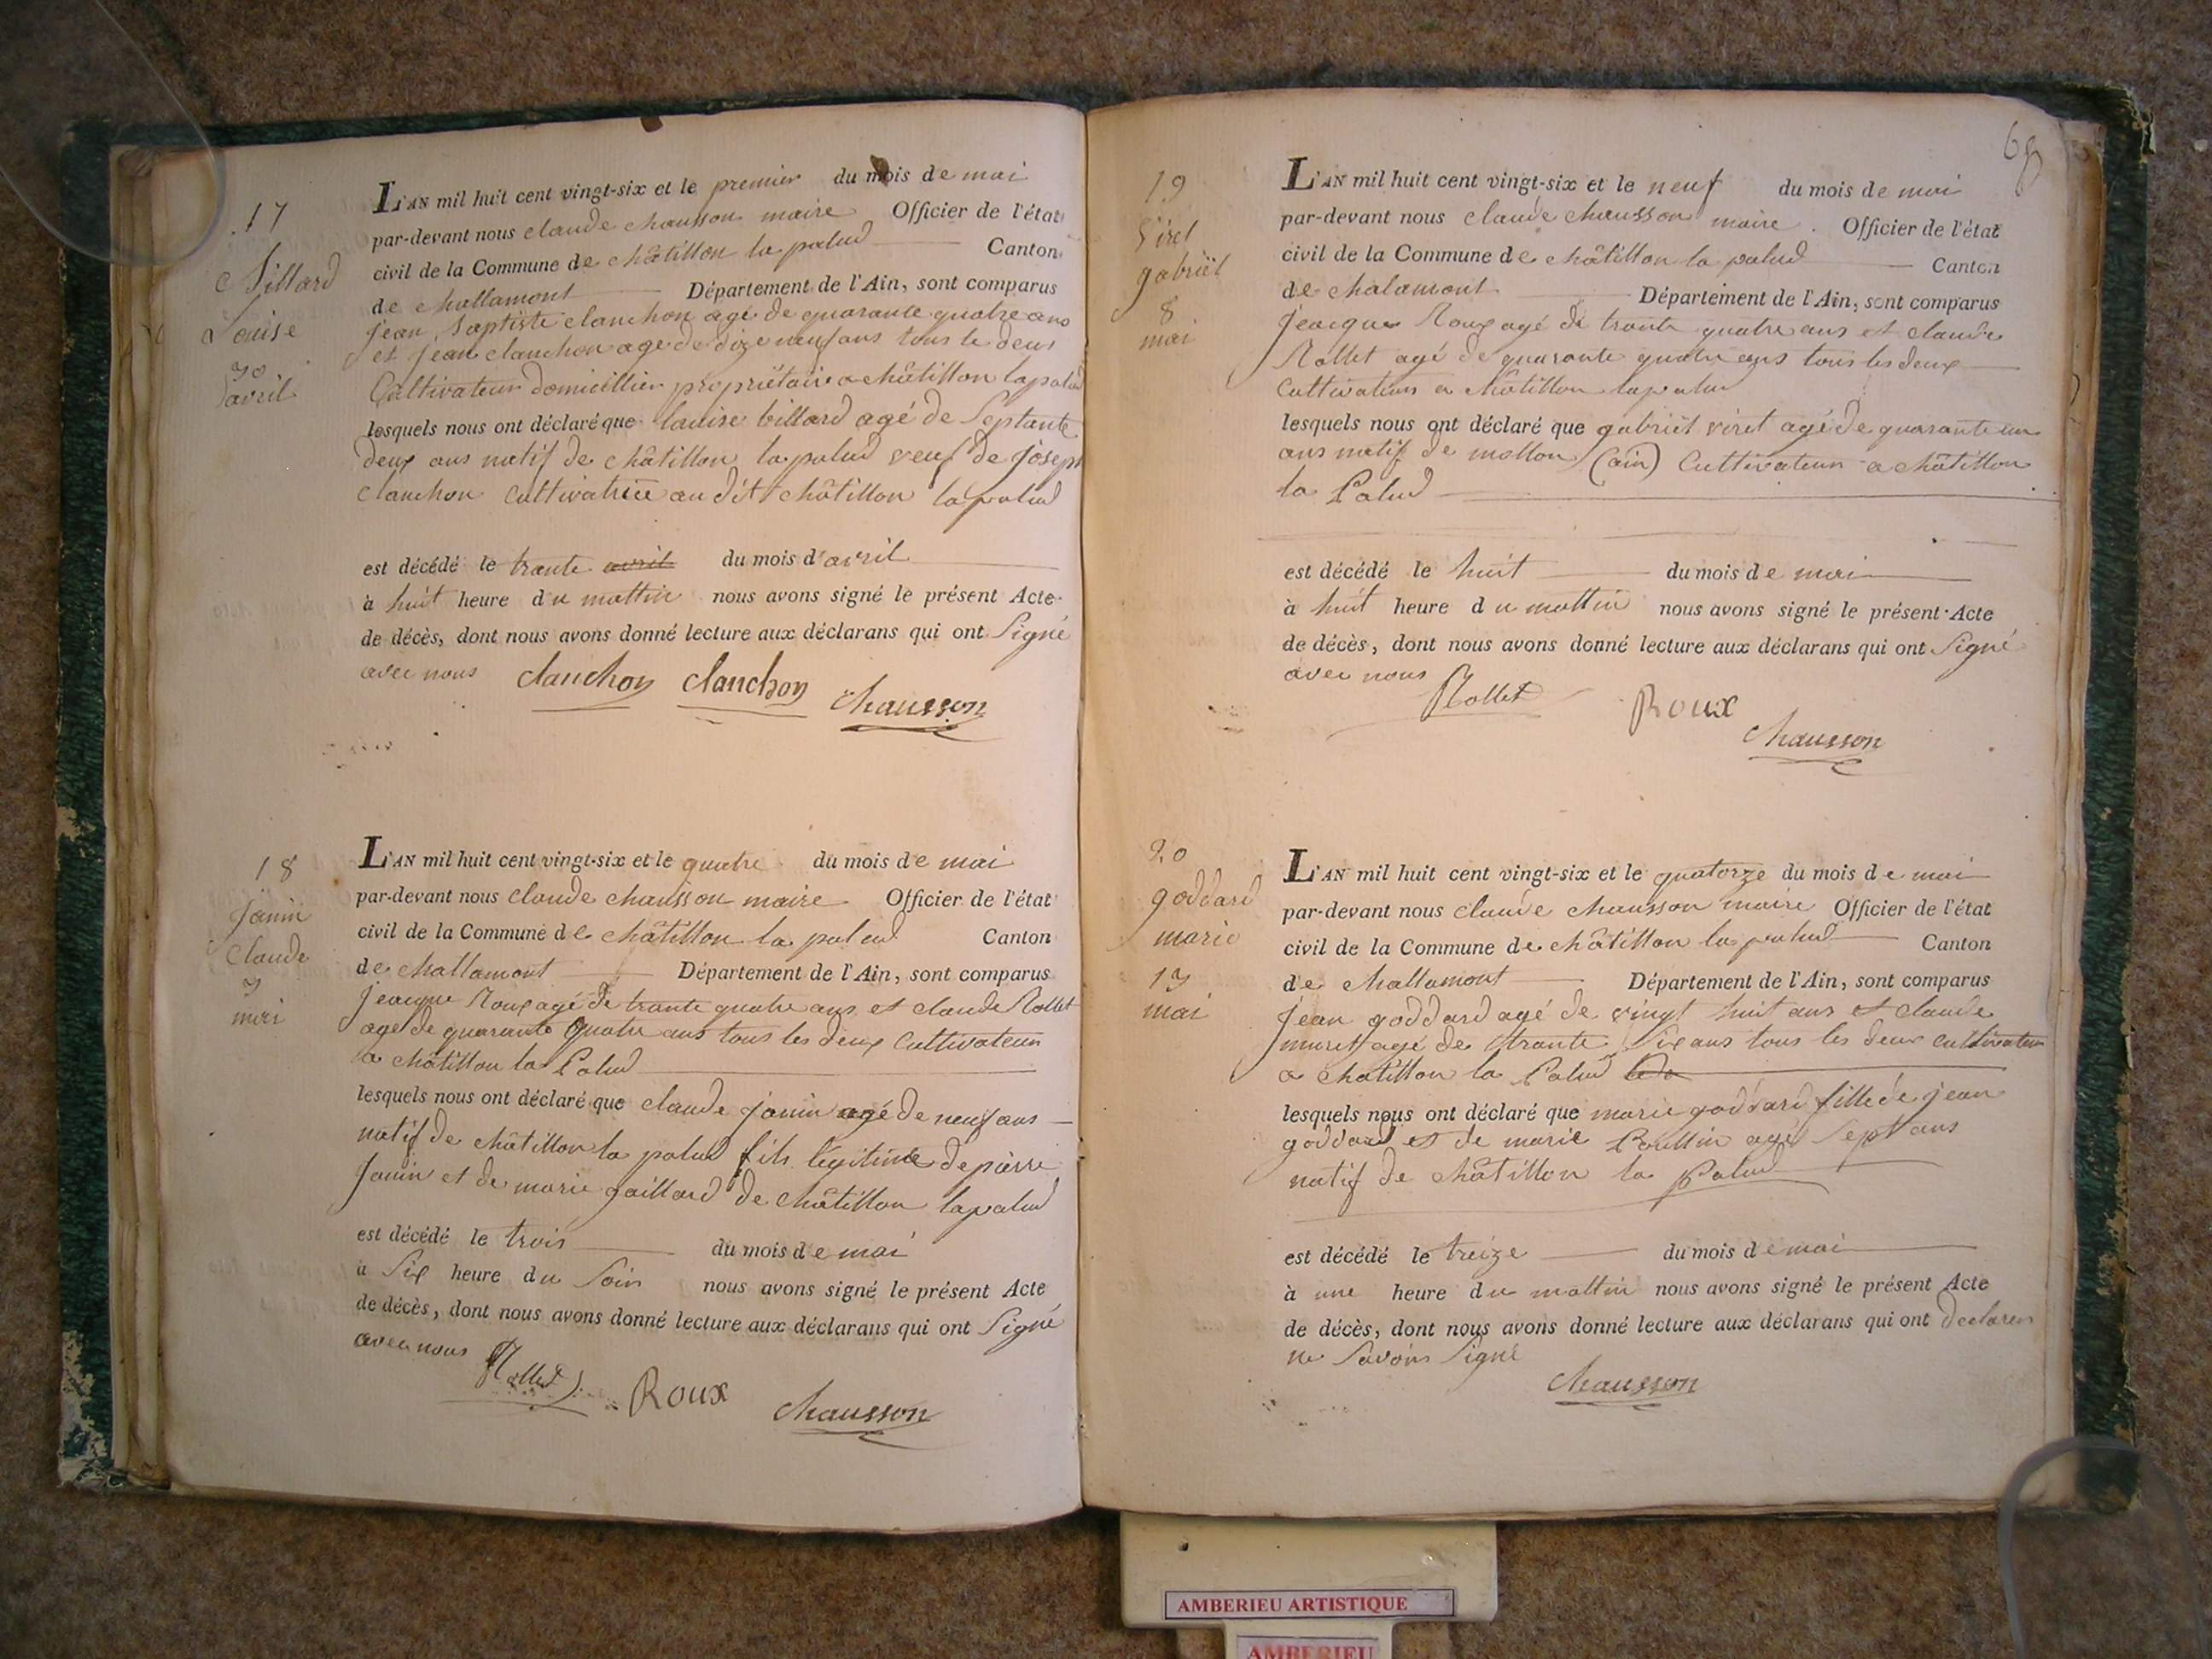 17
Billard
Louise
30
avril
L'AN mil huit cent vingt-six et le premier du mois de mai
par-devant nous claude chausson maire Officier de l'état
civil de la Commune de châtillon la palud Canton
de challamont Département de l'Ain, sont comparus
jean Baptiste clanchon agé de quarante quatre ans
et jean clanchon agé de dize neuf ans tous le deus
Cultivateur domicillier propriétaire a châtillon la palud
lesquels nous ont déclaré que louise billard agé de Septante
deux ans natif de châtillon la palud veuf de joseph
clanchon Cultivatrice au dit châtillon la palud
est décédé le trante avril du mois d'avril
à huit heure du mattin nous avons signé le présent Acte
de décès, dont nous avons donné lecture aux déclarans qui ont Signé
avec nous clanchon clanchon chausson
18
janin
Claude
3
mai
L'AN mil huit cent vingt-six et le quatre du mois de mai
par-devant nous claude chausson maire Officier de l'état
civil de la Commune de châtillon la palud Canton
de challamont Département de l'Ain, sont comparus
jeacque Roux agé de trante quatre ans et claude Rollet
agé de quarante quatre ans tous les deux Cultivateur
a châtillon la Palud
lesquels nous ont déclaré que claude janin agé de neuf ans
natif de châtillon la palud fils légitime de pierre
janin et de marie gaillard de châtillon la palud
est décédé le trois du mois de mai
à Six heure du Soir nous avons signé le présent Acte
de décès, dont nous avons donné lecture aux déclarans qui ont Signé
avec nous Rollet Roux chausson
68
19
Viret
gabriël
8
mai
L'AN mil huit cent vingt-six et le neuf du mois de mai
par-devant nous claude chausson maire Officier de l'état
civil de la Commune de châtillon la palud Canton
de chalamont Département de l'Ain, sont comparus
jeacque Roux agé de trante quatre ans et claude
Rollet agé de quarante quatre ans tous les deux
Cultivateurs a châtillon la palud
lesquels nous ont déclaré que gabriël viret agé de quarante un
ans natif de mollon (ain) Cultivateur a châtillon
la Palud
est décédé le huit du mois de mai
à huit heure du mattin nous avons signé le présent Acte
de décès, dont nous avons donné lecture aux déclarans qui ont Signé
avec nous Rollet Roux
chausson
20
goddard
marie
13
mai
L'AN mil huit cent vingt-six et le quatorze du mois de mai
par-devant nous claude chausson maire Officier de l'état
civil de la Commune de châtillon la palud Canton
de challamont Département de l'Ain, sont comparus
jean goddard agé de vingt huit ans et claude
muret agé de trante Six ans tous les deux cultivateur
a châtillon la Palud
lesquels nous ont déclaré que marie goddard fille de jean
goddard et de marie agé Sept ans
natif de châtillon la Palud
est décédé le treize du mois de mai
à une heure du mattin nous avons signé le présent Acte
de décès, dont nous avons donné lecture aux déclarans qui ont declaren
ne Savoirs Signé
chausson
AMBERIEU ARTISTIQUE
AMBERIEU